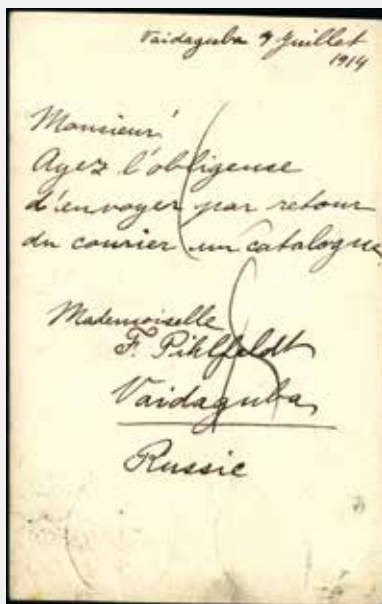 Vaidaguba 9 Juillet
1914
Monsieur!
Ayez l'obligense
d'envoyer par retour
du courier un catalogue
Mademoiselle
F. Pihlfeldt
Vaidaguba
Russie